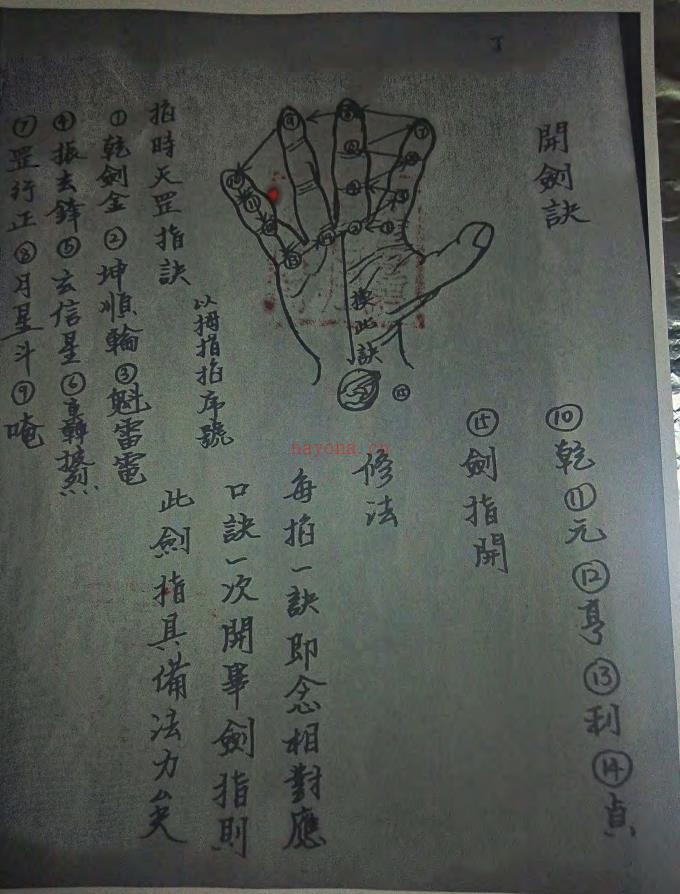 丁
開劍訣
換此訣
掐時天罡指訣
以拇指掐序號
①乾劍金②坤順輪③魁雷電
④振去鋒⑤玄信星⑥轟
⑦罡行正⑧月星斗⑨唵
⑩乾⑪元⑫亨⑬利⑭貞
⑮劍指開
修法
每掐一訣即念相對應
口訣一次開畢劍指則
此劍指具備法力矣
nayona.cn